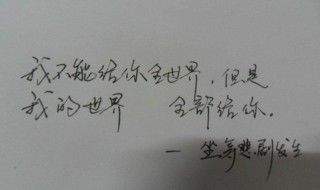 我不能给你全世界，但是
我的世界 全部给你。
一 坐等悲剧发生